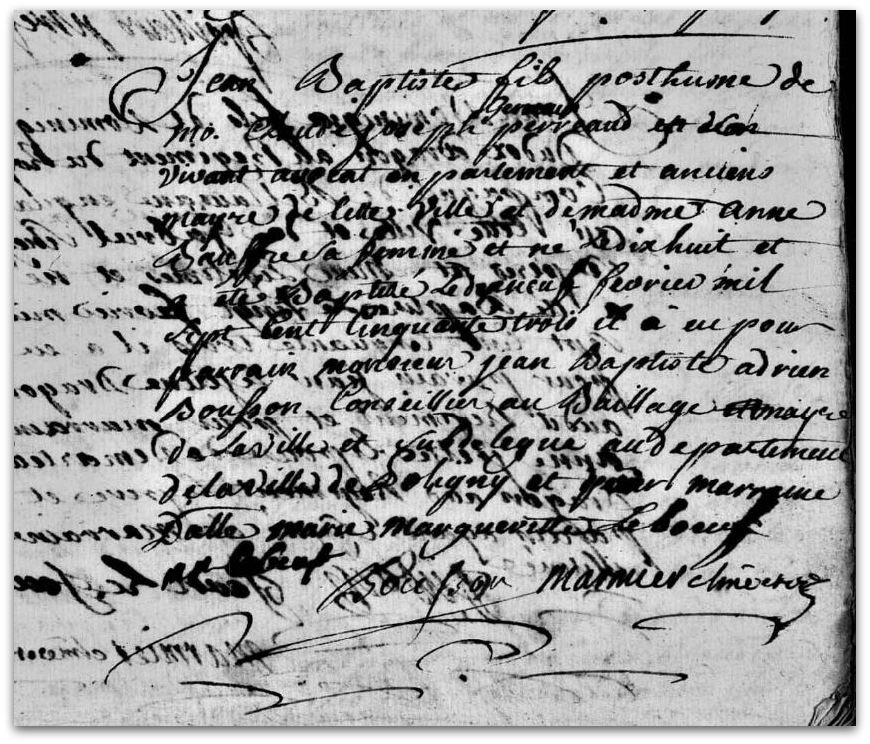 Jean Baptiste fils posthume de
mo. Claude joseph germain perreaud en son
vivant avocat en parlement et anciens
mayre de cette ville et de madme anne
sa femme et né le dix huit et
a été Baptisé le dixneuf fevrier mil
sept cent cinquante trois et a eu pour
parrain monsieur jean Baptiste adrien
Bousson Conseillier au Baillage mayre
de la ville et subdelegue au departement
de la ville de Poligny et pour marraine
Dalle marie margueritte Leboeuf
m m lebeuf
Bousson marmier